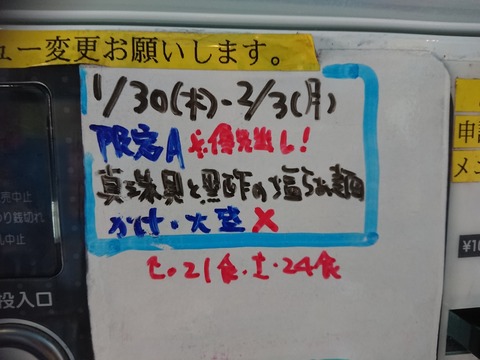 ュー変更お願いします。
1/30(木)・2/3(月)
限定A ※優先出し!
真珠貝と黒酢の塩らぁ麺
かけ・大盛 X
21食・土・24食
売中止
り銭切れ
中止
投入口
申請
メニ
¥1